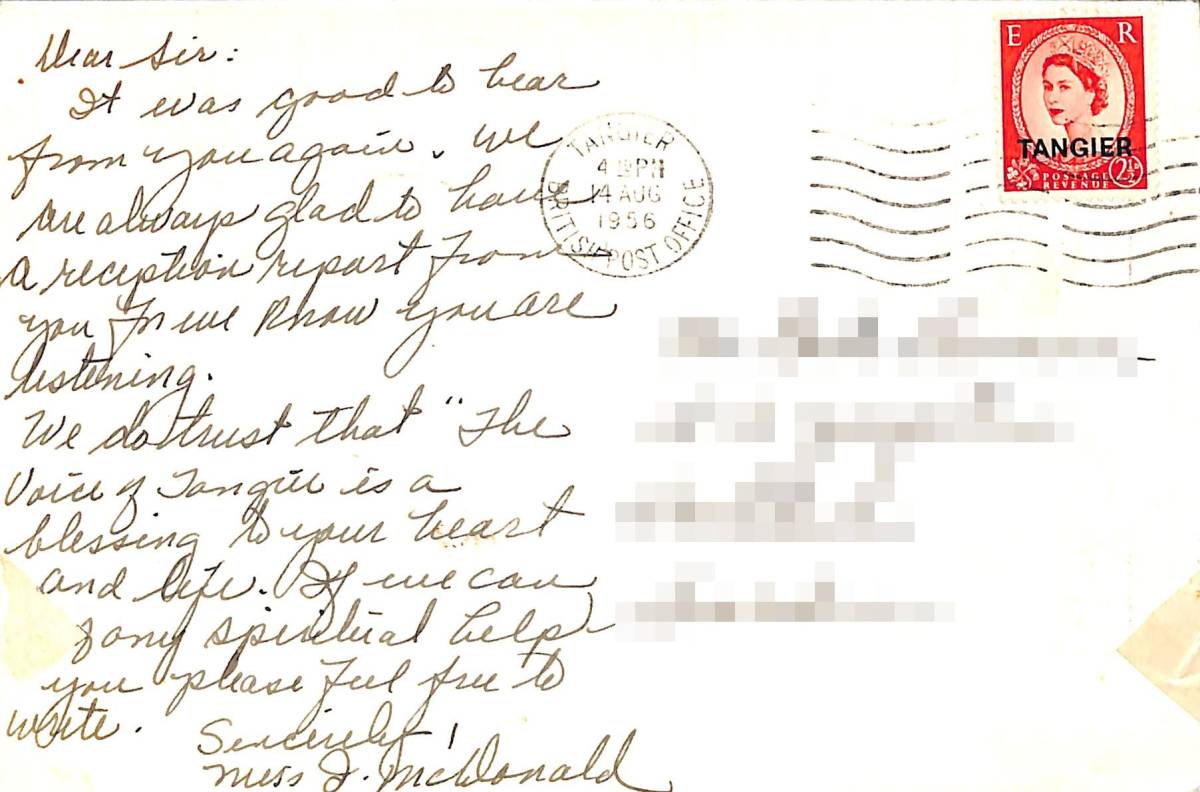 Dear Sir:
It was good to hear
from you again. We
are always glad to have
a reception report from
you for we know you are
listening.
We do trust that "The
Voice of Tangier is a
blessing to your heart
and life. If we can
of any spiritual help
you please feel free to
write.
Sincerely,
Miss J. McDonald
TANGIER
4 PM
14 AUG
1956
BRITISH POST OFFICE
E R
TANGIER
POSTAGE
REVENUE
2½D